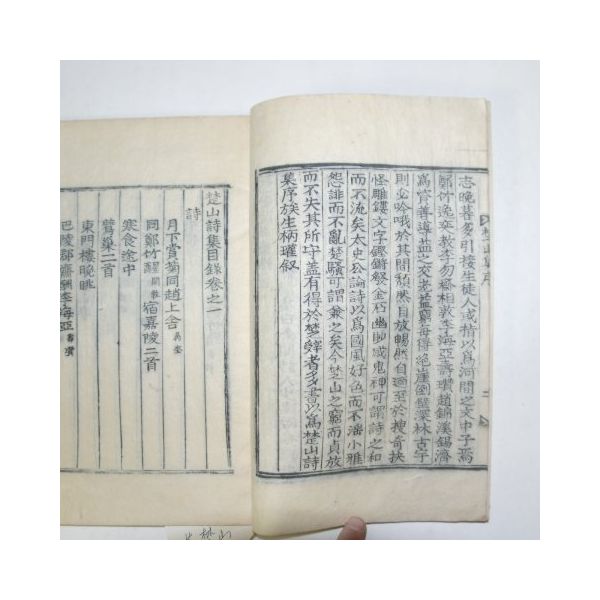 志晚暮多引接生徒人或稱以為洞開之文中子焉
鄭竹逸奕教李勿齋相敦李海亞壽瓚趙錦溪錫濟
為資善導益之交老益窮每得絕崖倒壁深林古宇
則必吟哦於其間頹然自放暢然自適至於搜奇抉
怪雕鏤文字鏗鏘發金石幽眇感鬼神可謂詩之和
而不流矣太史公論詩以爲國風好色而不淫小雅
怨誹而不亂楚騷可謂兼之矣今楚山之窮而貞放
而不失其所守盖有得於楚辭者多書以爲楚山詩
集序族生柄瓘叙
楚山詩集目錄卷之一
詩
月下賞菊同趙上舍
同鄭竹醒宿嘉陵二首
寒食途中
鶯巢二首
東門樓晚眺
巴陵郡齋酬李海亞壽瓚